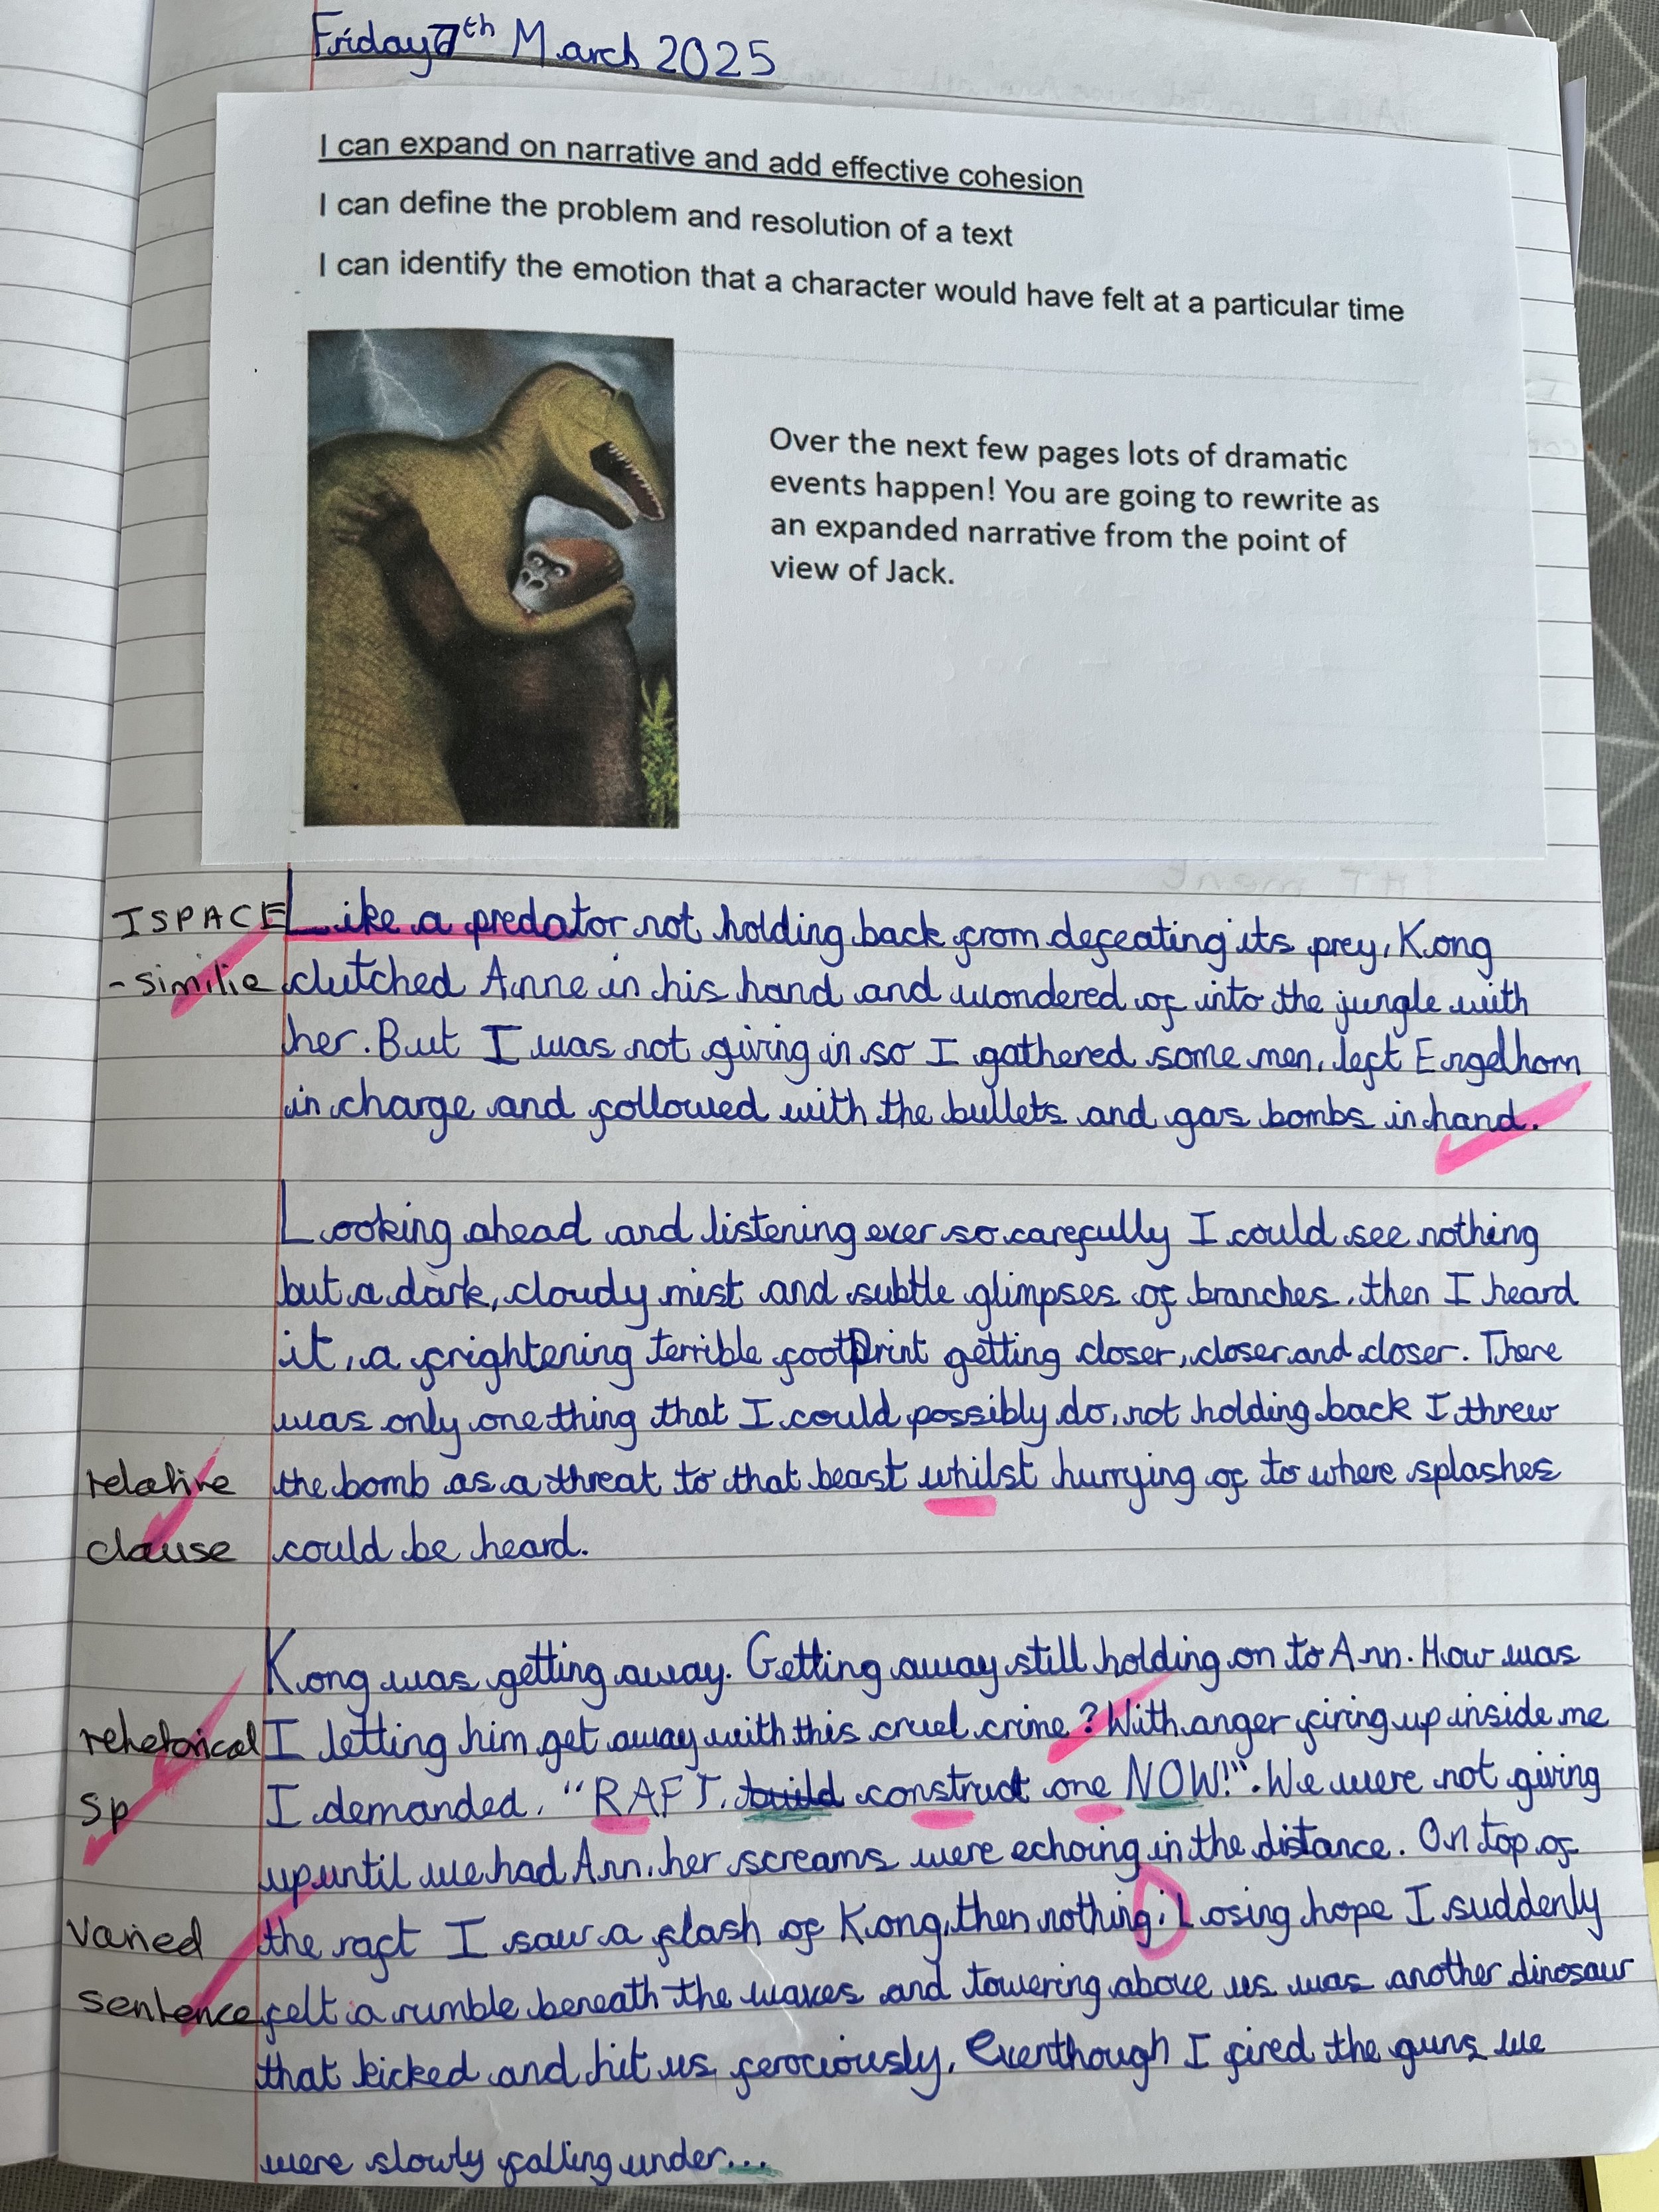 Friday 7th March 2025
I can expand on narrative and add effective cohesion
I can define the problem and resolution of a text
I can identify the emotion that a character would have felt at a particular time
Over the next few pages lots of dramatic
events happen! You are going to rewrite as
an expanded narrative from the point of
view of Jack.
ISPACE Like a predator not holding back from defeating its prey, Kong
- similie clutched Anne in his hand and wondered of into the jungle with
her. But I was not giving in so I gathered some men, left Engelhorn
in charge and followed with the bullets and gas bombs in hand.
Looking ahead and listening ever so carefully I could see nothing
but a dark, cloudy mist and subtle glimpses of branches, then I heard
it, a frightening terrible footprint getting closer, closer and closer. There
was only one thing that I could possibly do, not holding back I threw
relative the bomb as a threat to that beast whilst hurrying of to where splashes
clause could be heard.
Kong was getting away. Getting away still holding on to Ann. How was
rehetorical I letting him get away with this cruel crime? With anger firing up inside me
Sp I demanded, "RAFT, build construct one NOW!". We were not giving
up until we had Ann, her screams were echoing in the distance. On top of
Varied the raft I saw a flash of Kong, then nothing; Losing hope I suddenly
sentence felt a rumble beneath the waves and towering above us was another dinosaur
that kicked and hit us ferociously. Eventhough I fired the guns we
were slowly falling under...